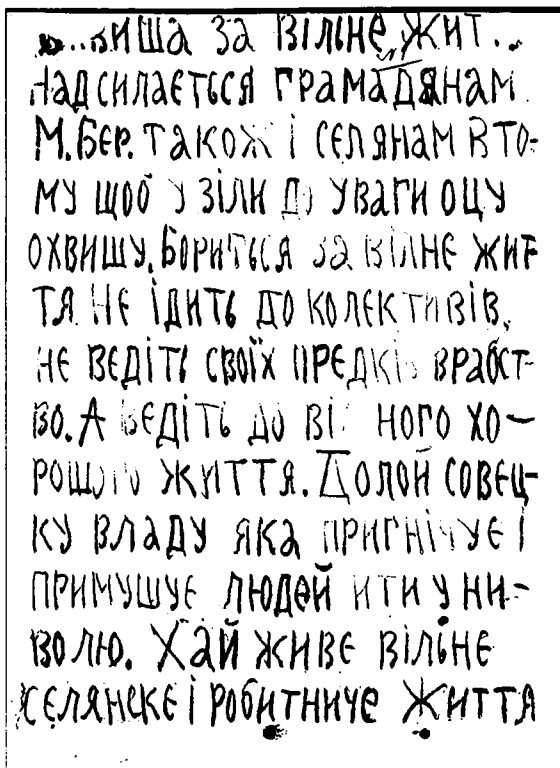 ..виша за вільне жит..
Надсилається грамадянам
М.Бер. також і селянам в то-
му щоб узіли до уваги оцу
охвишу. Бориться за вілне жит
тя не ідить до колективів,
не ведіть своїх предків врабст-
во. А ведіть до вільного хо-
рошого життя. Долой совец-
ку владу яка пригнічує і
примушує людей ити у ни-
волю. Хай живе вільне
селянске і робитниче життя